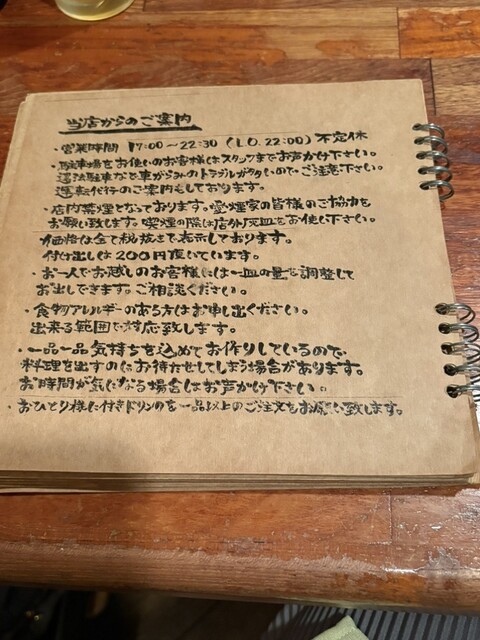 当店からのご案内
・営業時間 17:00〜22:30 (L.O.22:00) 不定休
・駐車場をお使いのお客様はスタッフまでお声かけ下さい。
違法駐車など車がらみのトラブルが多いのでご注意下さい。
運転代行のご案内もしております。
・店内禁煙となっております。愛煙家の皆様のご協力を
お願い致します。喫煙の際は店外灰皿をお使い下さい。
価格は全て税抜きで表示しております。
付け出しは200円頂いています。
・お一人でお越しのお客様には一皿の量を調整して
お出しできます。ご相談ください。
・食物アレルギーのある方はお申し出ください。
出来る範囲で対応致します。
・一品一品気持ちを込めてお作りしているので、
料理を出すのにお待たせしてしまう場合があります。
お時間が気になる場合はお声かけ下さい。
・おひとり様に付きドリンクを一品以上のご注文をお願い致します。